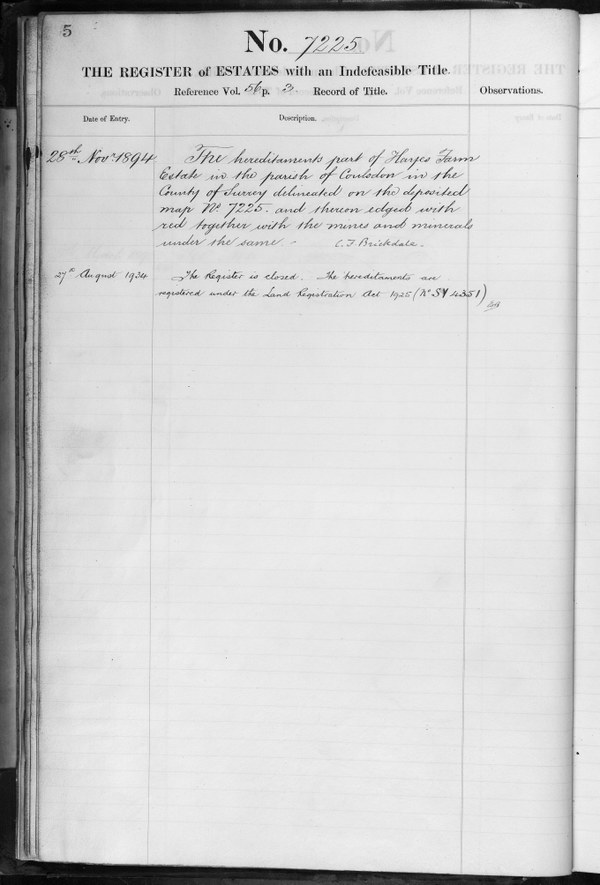 5
No. 7225
THE REGISTER of ESTATES with an Indefeasible Title.
Reference Vol. 56 p. 3. Record of Title.
Observations.
Date of Entry.
Description.
28th Novr. 1894
The hereditaments part of Hayes Farm
Estate in the parish of Coulsdon in the
County of Surrey delineated on the deposited
map No. 7225. and thereon edged with
red together with the mines and minerals
under the same. - C.F. Brickdale.
27th August 1934
The Register is closed. The hereditaments are
registered under the Land Registration Act 1925 (No SY 4351)